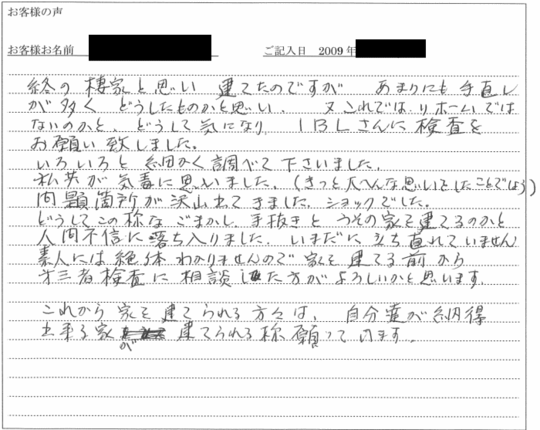 お客様の声
お客様お名前 ご記入日 2009年
終の棲家と思い 建てたのですが あまりにも手直し
が多く どうしたものかと思い、 又これでは、リホームでは
ないのかと、どうして気になり、IBLさんに検査を
お願い致しました。
いろいろと細かく調べて下さいました。
私共が気毒に思いました。(きっと大へんな思いをしたことでしょう)
問題箇所が沢山出てきました。ショックでした。
どうしてこの様なごまかし、手抜きとうその家を建てるのかと
人間不信に落ち入りました。いまだに立ち直れていません
素人には絶体わかりませんので家を建てる前から
第三者検査に相談した方がよろしいかと思います。
これから家を建てられる方々は、自分達が納得
出来る家が建てられる様願っています。